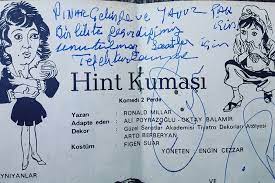 PINAR Gelinşe ve YAVUZ
için
Birlikte
Saatler için
Hint Kuması
Komedi 2 Perde
Yazan RONALD MILLAR
Adapte eden ALİ POYRAZOĞLU - OKTAY BALAMİR
Dekor Güzel Sanatlar Akademisi Tiyatro Dekorları Atölyesi
ARTO BERBERYAN
Kostüm FİGEN SUAR
YÖNETEN ENGİN CEZZAR
YNİYANLAR